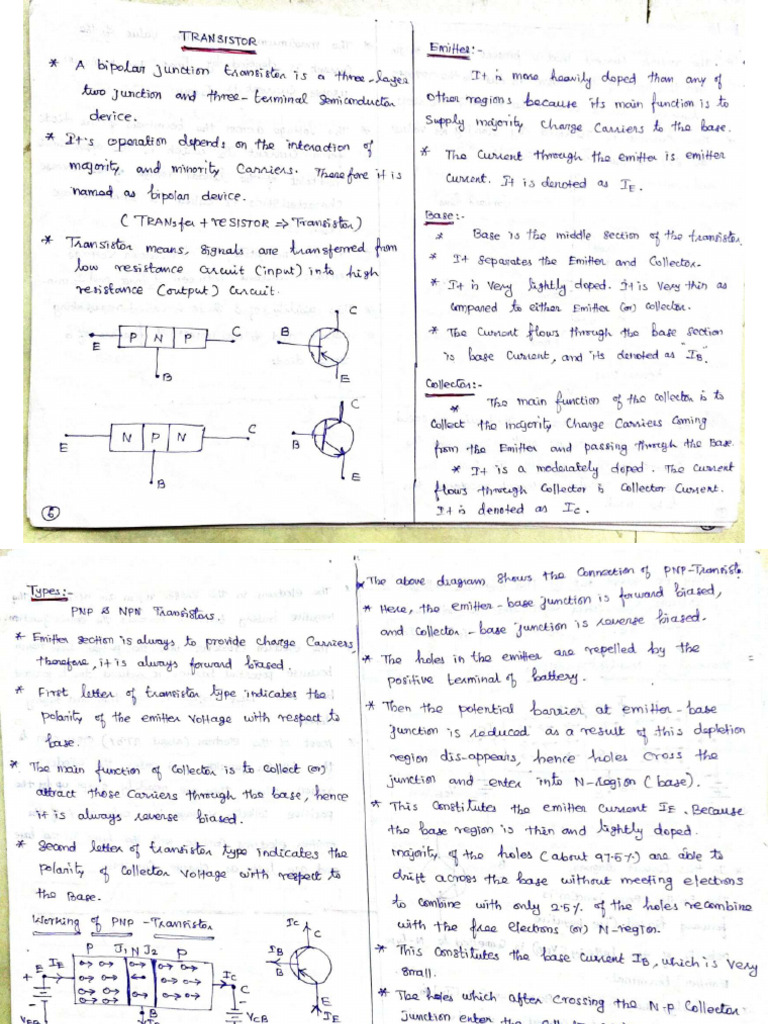 TRANSISTOR
* A bipolar junction transistor is a three-layer
two junction and three-terminal semiconductor
device.
* It's operation depends on the interaction of
majority and minority Carriers. Therefore it is
named as bipolar device.
(TRANsfer + reSISTOR => Transistor)
* Transistor means, signals are transferred from
low resistance circuit (input) into high
resistance (output) circuit.
P N P
E
C
B
B
C
E
N P N
E
C
B
B
C
E
6
Emitter:-
It is more heavily doped than any of
other regions because its main function is to
supply majority charge carriers to the base.
* The current through the emitter is emitter
current. It is denoted as IE.
Base:-
* Base is the middle section of the transistor.
* It separates the Emitter and Collector.
* It is very lightly doped. It is very thin as
compared to either Emitter (or) collector.
* The current flows through the base section
is base current, and its denoted as "IB".
Collector:-
* The main function of the collector is to
collect the majority charge carriers coming
from the Emitter and passing through the Base.
* It is a moderately doped. The current
flows through Collector is Collector current.
It is denoted as IC.
Types:-
PNP & NPN Transistors.
* Emitter section is always to provide charge carriers,
therefore, it is always forward biased.
* First letter of transistor type indicates the
polarity of the emitter voltage with respect to
base.
* The main function of collector is to collect (or)
attract those carriers through the base, hence
it is always reverse biased.
* Second letter of transistor type indicates the
polarity of collector voltage with respect to
the Base.
Working of PNP - Transistor
P J1 N J2 P
+ E IE
IC
C
B
VCB
IC
C
IB
B
E
IE
* The above diagram shows the connection of PNP-Transisto
* Here, the emitter-base junction is forward biased,
and collector-base junction is reverse biased.
* The holes in the emitter are repelled by the
positive terminal of battery.
* Then the potential barrier at emitter-base
junction is reduced as a result of this depletion
region dis-appears, hence holes cross the
junction and enter into N-region (base).
* This constitutes the emitter current IE. Because
the base region is thin and lightly doped.
majority of the holes (about 97.5%) are able to
drift across the base without meeting electrons
to combine with only 2.5% of the holes recombine
with the free electrons (or) N-region.
* This constitutes the base current IB, which is very
small.
* The holes which after crossing the N-P Collector
junction enter the